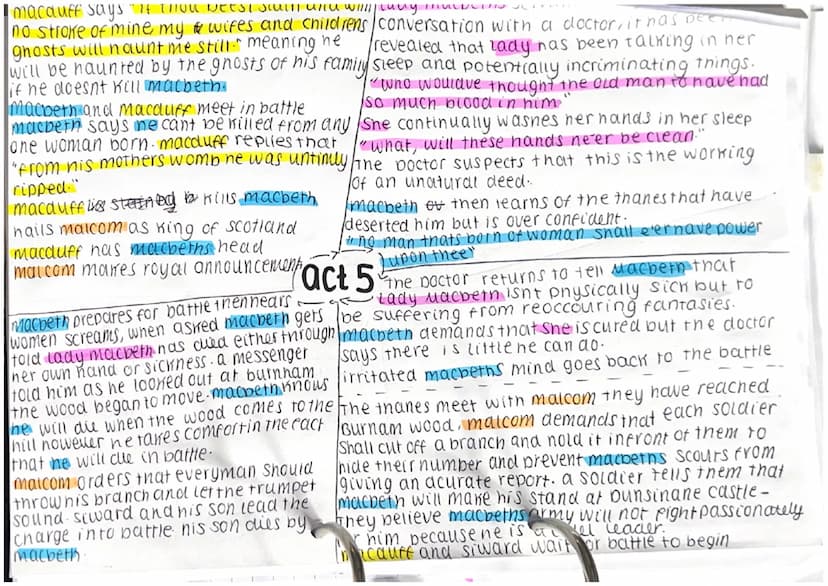 macduff says "if thou beest slain and with
no stroke of mine my wifes and childrens
ghosts will haunt me still." meaning he
will be haunted by the ghosts of his family
if he doesnt kill macbeth.
macbeth and macduff meet in battle
macbeth says he cant be killed from any
one woman born. macduff replies that
"from his mothers womb he was untimly
ripped."
macduff kills macbeth
hails malcom as king of scotland
macduff has macbeths head
malcom makes royal announcement
conversation with a doctor, it has been
revealed that lady has been talking in her
sleep and potentially incriminating things.
"who wouldve thought the old man to have had
so much blood in him"
she continually washes her hands in her sleep
"what, will these hands ne'er be clean"
the doctor suspects that this is the working
of an unatural deed.
macbeth then learns of the thanes that have
deserted him but is over confident.
"no man thats born of woman shall e'er have power
upon thee"
act 5
macbeth prepares for battle then hears
women screams, when asked macbeth gets
told lady macbeth has died either through
her own hand or sickness. a messenger
told him as he looked out at burnham
the wood began to move. macbeth knows
he will die when the wood comes to the
hill however he takes comfort in the fact
that he will die in battle.
malcom orders that everyman should
throw his branch and let the trumpet
sound. siward and his son lead the
charge into battle. his son dies by
macbeth.
the doctor returns to tell macbeth that
lady macbeth isnt physically sick but to
be suffering from reoccouring fantasies.
macbeth demands that she is cured but the doctor
says there is little he can do.
irritated macbeths mind goes back to the battle
The thanes meet with malcom they have reached
Burnam wood, malcom demands that each soldier
shall cut off a branch and hold it infront of them to
hide their number and prevent macbeths scours from
giving an acurate report. a soldier tells them that
macbeth will make his stand at Dunsinane castle-
they believe macbeths army will not fight passionately
for him because he is a leader.
macduff and siward wait for battle to begin